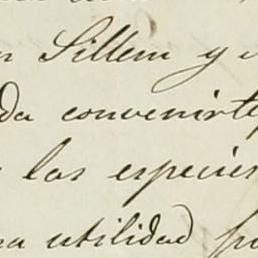 n Sillem y
da convenirte
las especies
na utilidad